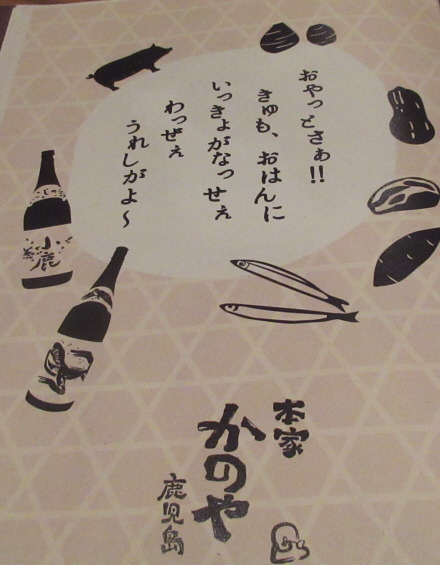 おやっとさぁ!!
きゅも、おはんに
いっきょがなっせぇ
わっぜぇ
うれしがよ～
小鹿
本家
かのや
鹿児島